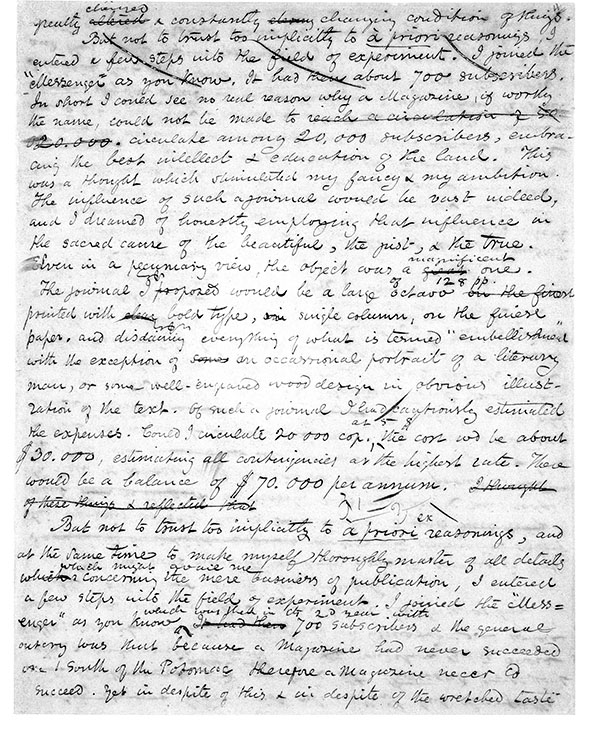 changed
greatly altered & constantly changing condition of things.
But not to trust too implicitly to a priori reasonings I
entered a few steps into the field of experiment. I joined the
"Messenger" as you know. It had then about 700 subscribers.
In short I could see no real reason why a Magazine, if worthy
the name, could not be made to reach a circulation of
20.000. circulate among 20,000 subscribers, embra-
cing the best intellect & education of the land. This
was a thought which stimulated my fancy & my ambition.
The influence of such a journal would be vast indeed,
and I dreamed of honestly employing that influence in
the sacred cause of the beautiful, the just, & the true.
magnificent
Even in a pecuniary view, the object was a great one.
128 pp.
The journal I proposed would be a large octavo on the finest
printed with clear bold type, in single column, on the finest
paper. and disdaining everything of what is termed "embellishment"
with the exception of some an occassional portrait of a literary
man, or some well-engraved wood design in obvious illust-
ration of the text. Of such a journal I had cautiously estimated
at $5
the expenses. Could I circulate 20 000 cop. the cost wd be about
$30.000, estimating all contingencies at the highest rate. There
would be a balance of $70.000 per annum. I thought
of these things & reflected that
ex
But not to trust too implicitly to a priori reasonings, and
at the same time to make myself thoroughly master of all details
which might avail me
which concerning the mere business of publication, I entered
a few steps into the field of experiment. I joined the "Mess=
which was then in its 2d year with
enger" as you know It had then 700 subscribers & the general
outcry was that because a Magazine had never succeeded
South of the Potomac therefore a Magazine never cd
succeed. Yet in despite of this & in despite of the wretched taste